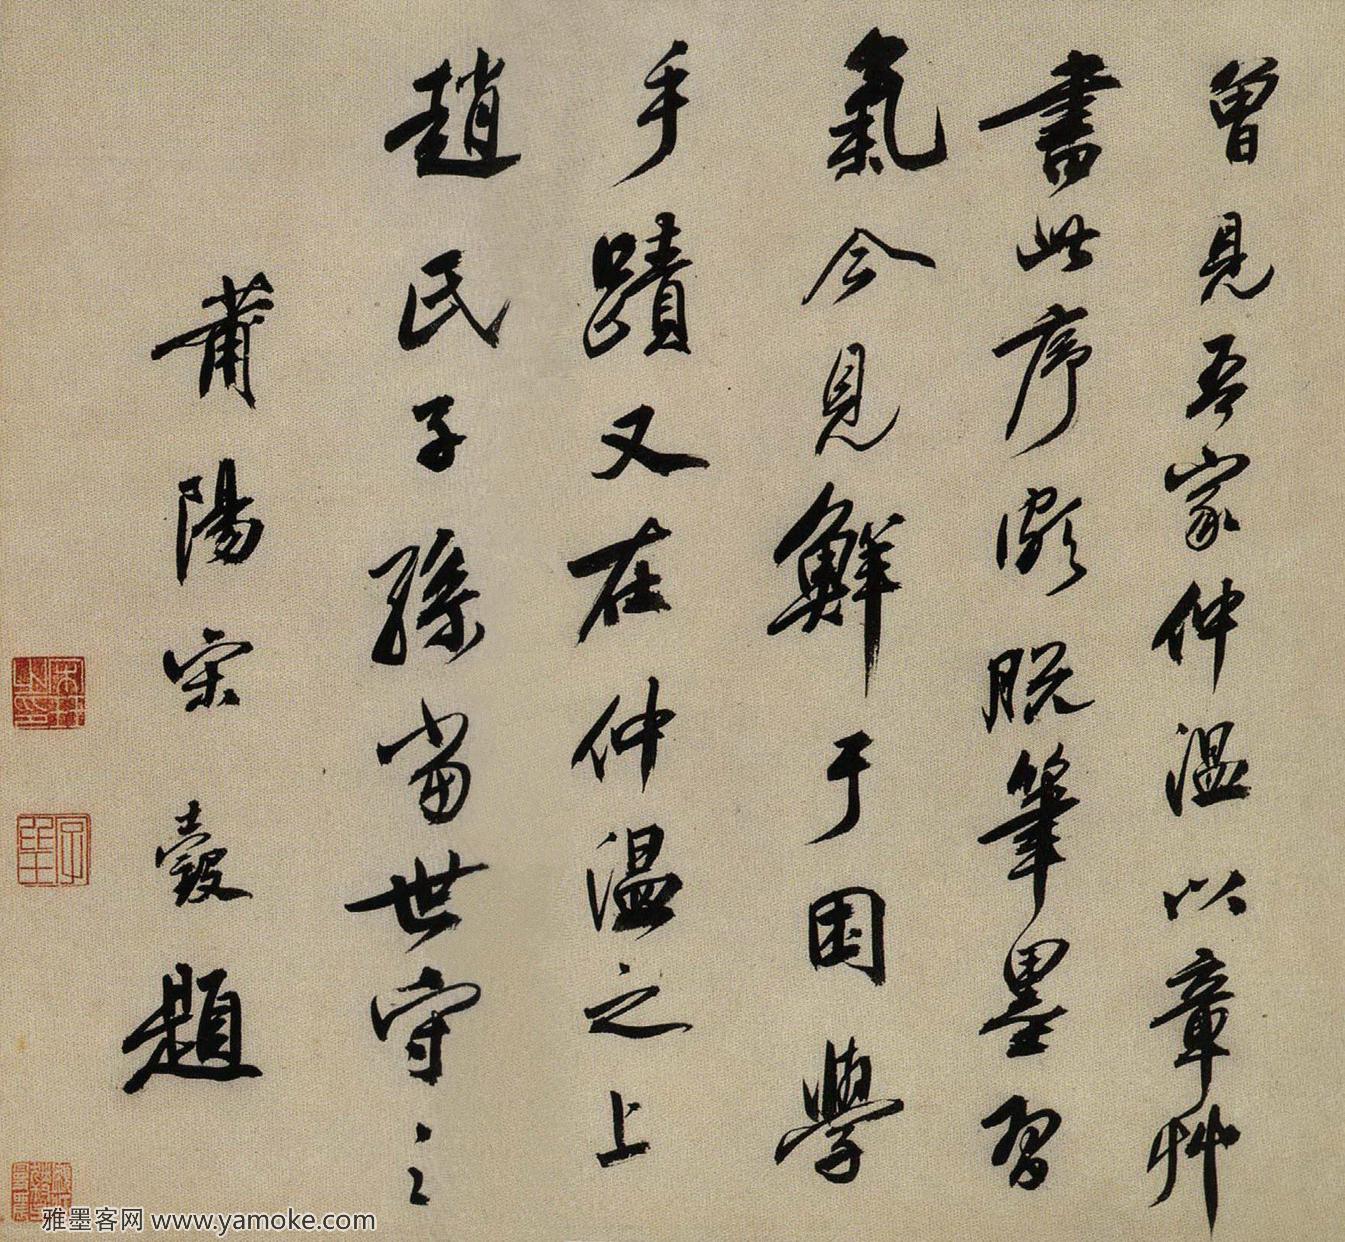 曾見吾家仲溫以章艸
書此序頗脫筆墨習
氣今見鮮于困學
手蹟又在仲溫之上
趙氏子孫當世守之
莆陽宋瑴題
雅墨客网 www.yamoke.com